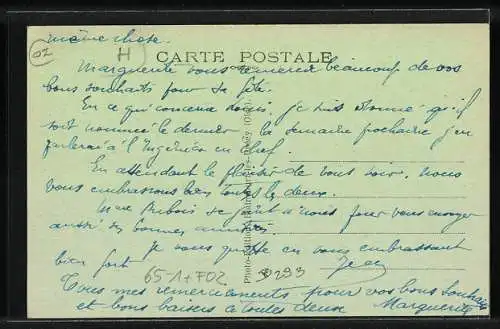 même chose.
02 H CARTE POSTALE
Marguerite vous remercie beaucoup de vos
bons souhaits pour sa fête.
En ce qui concerne Louis, je suis étonné qu'il
soit nommé le dernier la semaine prochaine j'en
parlerai à l'Ingénieur en Chef
En attendant le plaisir de vous voir. Nous
vous embrassons bien toutes les deux.
Mme Dubois se joint à nous pour vous envoyer
aussi ses bonnes amitiés
Je vous quitte en vous embrassant
bien fort
Jean
651+702 293
Tous mes remerciements pour vos bons souhaits
et bons baisers à toutes deux Marguerite
Photo-Edition
(Oise).